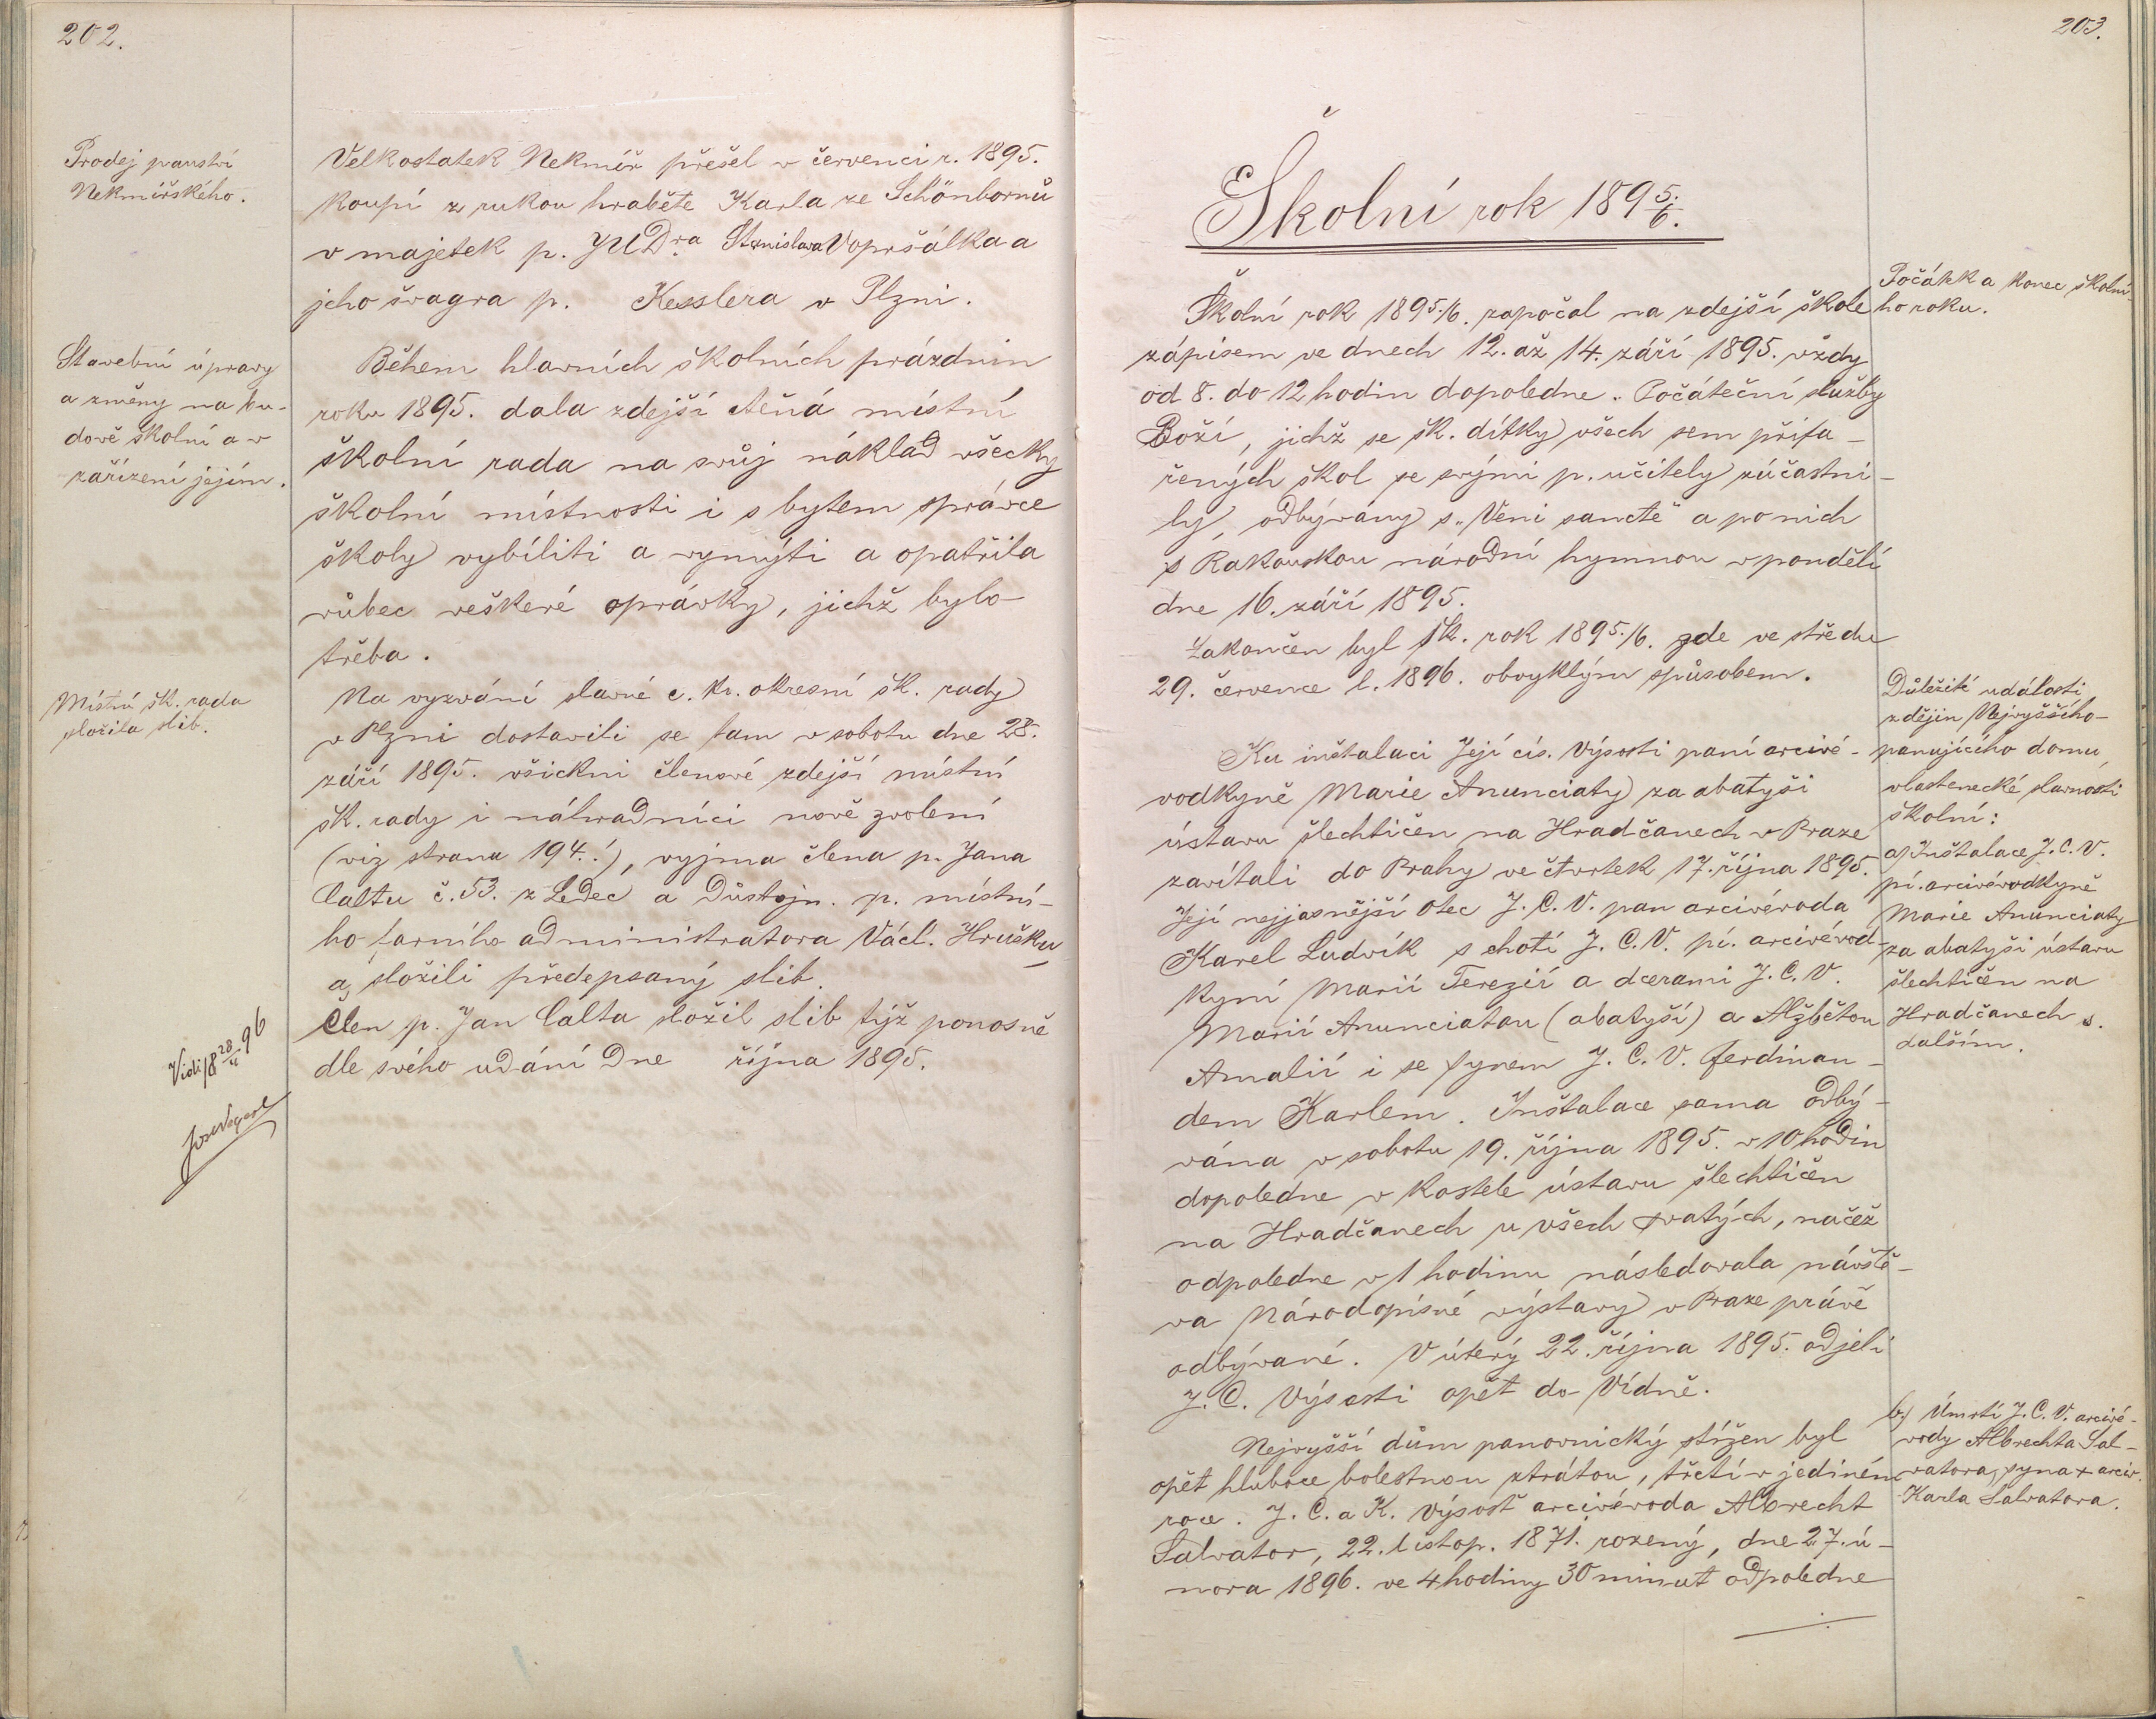 202.
Prodej panství
Nekmířského.
Velkostatek Nekmíř přešel v červenci r. 1895.
koupí z rukou hraběte Karla ze Schönbornů
v majetek p. JUDra Stanislava Vopršálka a
jeho švagra p. Kesslera v Plzni.
Stavební úpravy
a změny na bu-
dově školní a v
zařízení jejím.
Během hlavních školních prázdnin
roku 1895. dala zdejší ctěná místní
školní rada na svůj náklad všecky
školní místnosti i s bytem správce
školy vybíliti a vymýti a opatřila
vůbec veškeré oprávky, jichž bylo
třeba.
Místní šk. rada
složila slib.
Na vyzvání slavné c. kr. okresní šk. rady
v Plzni dostavili se tam v sobotu dne 28.
září 1895. všickni členové zdejší místní
šk. rady i náhradníci nově zvolení
(viz strana 194.!), vyjma člena p. Jana
Caltu č. 53. z Ledec a Důstojn. p. místní-
ho farního administratora Václ. Hrušku,
a složili předepsaný slib.
Člen p. Jan Calta složil slib týž ponosně
dle svého udání dne října 1895.
Vidi 18 28/II 96
203.
Školní rok 1895./6.
Počátek a konec školní-
ho roku.
Školní rok 1895./6. započal na zdejší škole
zápisem ve dnech 12. až 14. září 1895. vždy
od 8. do 12 hodin dopoledne. Počáteční služby
Boží, jichž se šk. dítky všech sem přifa-
řených škol se svými p. učitely zúčastni-
ly, odbývány s „Veni sancte" a po nich
s Rakouskou národní hymnou v pondělí
dne 16. září 1895.
Zakončen byl šk. rok 1895./6. zde ve středu
29. července l. 1896. obvyklým spůsobem.
Důležité události
z dějin Nejvyššího
panujícího domu,
vlastenecké slavnosti
školní:
a) Inštalace J. C. V.
pí. arcivévodkyně
Marie Anunciaty
za abatyši ústavu
šlechtičen na
Hradčanech s.
dalším.
Ku inštalaci Její cís. Výsosti paní arcivé-
vodkyně Marie Anunciaty za abatyši
ústavu šlechtičen na Hradčanech v Praze
zavítali do Prahy ve čtvrtek 17. října 1895.
Její nejjasnější otec J. C. V. pan arcivévoda
Karel Ludvík s chotí J. C. V. pí. arcivévod-
kyní Marií Terezií a dcerami J. C. V.
Marií Anunciatou (abatyší) a Alžbětou
Amalií i se synem J. C. V. Ferdinan-
dem Karlem. Inštalace sama odbý-
vána v sobotu 19. října 1895. v 10 hodin
dopoledne v kostele ústavu šlechtičen
na Hradčanech u všech svatých, načež
odpoledne v 1 hodinu následovala návště-
va Národopisné výstavy v Praze právě
odbývané. V úterý 22. října 1895. odjeli
J. C. Výsosti opět do Vídně.
b.) Úmrtí J. C. V. arcivé-
vody Albrechta Sal-
vatora, syna + arciv.
Karla Salvatora.
Nejvyšší dům panovnický stížen byl
opět hluboce bolestnou ztrátou, třetí v jediném
roce. J. C. a K. Výsost arcivévoda Albrecht
Salvator, 22. listop. 1871. rozený, dne 27. ú-
nora 1896. ve 4 hodiny 30 minut odpoledne